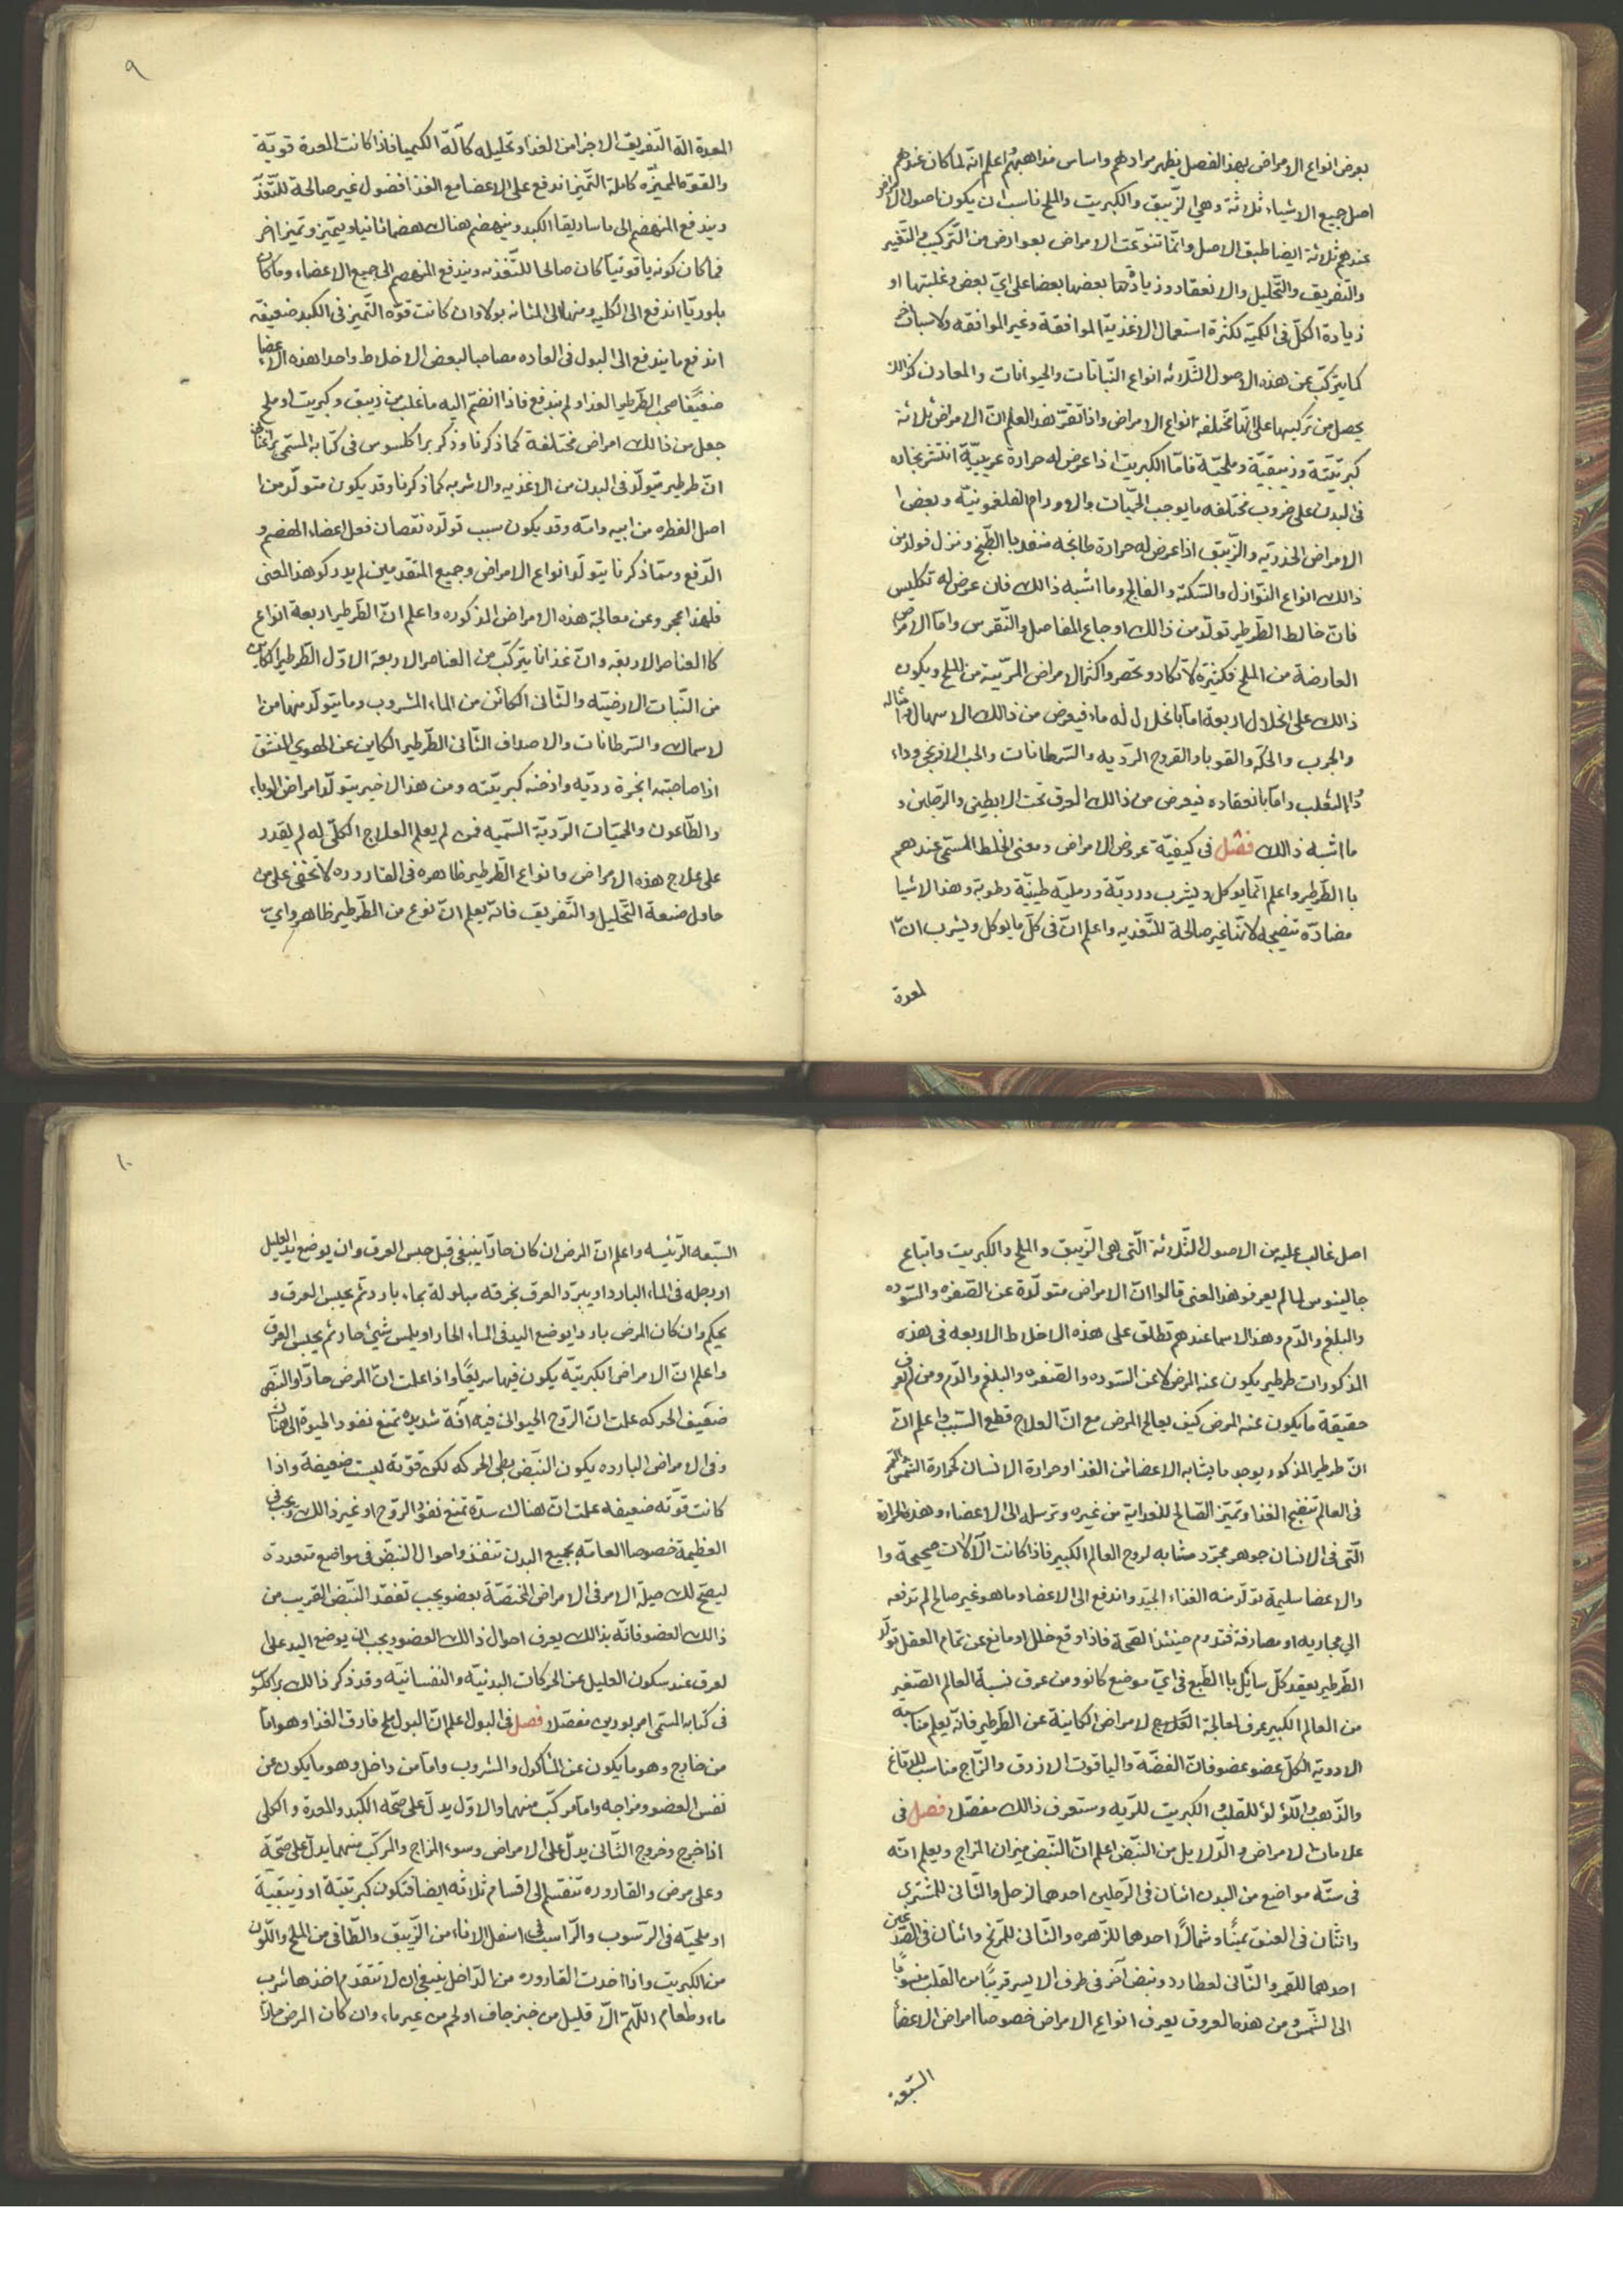 بعرض انواع الامراض بهذ الفصل يظهر مرادهم واساس مذاهبهم اعلم انه لما كان عندهم
اصل جميع الاشياء ثلاثة وهي الزيبق والكبريت والملح ناسب ان يكون اصول الامراض
عندهم ثلاثة ايضا طبق الاصل وانما تنوعت الامراض بعوارض من التركيب والتغير
والتفريق والتحليل والانعقاد وزيادة بعضها بعضا على اي بعض وغلبتها او
زيادة الكل في الكمية لكثرة استعمال الاغذية الموافقة وغير الموافقه ولاسباب اخر
كما يتركب عن هذه الاصول الثلاثه انواع النباتات والحيوانات والمعادن كذالك
يحصل من تركيبها على انها مختلفة انواع الامراض واذا تقرر هذ العلم ان الامراض ثلاثة
كبريتية وزيبقية وملحية فاما الكبريت اذا عرض له حرارة غريبية انتشر بخاره
فى البدن على ضروب مختلفه ما يوجب الحميات والاورام الفلغمونية وبعض ا
الامراض الخدرية والزيبق اذا عرض له حرارة طابخه صعد با الطبخ ونزل فولد من
ذالك انواع النوازل والسكتة والفالج وما اشبه ذالك فان عرض له تكليس
فان خالط الطرطير تولد من ذالك اوجاع المفاصل والنقرس واما الامراض
العارضة من الملح فكثيرة لا تكاد وتحصر واكثر الامراض المريية من الملح ويكون
ذالك على انحلال اربعة اما بانحلال له ماء فيعرض من ذالك الاسهال وامثاله
والجرب والحكه والقوبا والقروح الرديه والسرطانات والحب الافرنجي وداء
ذا الثعلب واما بانعقاده فيعرض من ذالك العرق تحت الابطين والرجلين و
ما اشبه ذالك فصل فى كيفية عروض الامراض ومعنى الخلط المستمى عندهم
با الطرطير واعلم انما يوكل ويشرب دردية ورملية طينية رطوبة وهذ الاشيا
مضادة تنضيجه لانها غير صالحة للتغذيه واعلم ان فى كل ما يوكل ويشرب ان ا
لمعدة
٩
المعدة الة التفريق الاجزا من الغذا وتحليله كآلة الكيميا فاذا كانت المعدة قوية
والقوة المميزه كاملة التميز اندفع على الاعضا مع الغذا فضول غير صالحة للتغذ
ويندفع المنهضم الى ماساريقا الكبد وينهضم هناك هضما ثانيا ويتميز وتميزا اخر
فما كان كونه ياقوتيا كان صالحا للتغذيه ويندفع المنهضم الى جميع الاعضاء وما كان
بلوريا اندفع الى الكليه ومنها الى المثانه بولا وان كانت قوة التميز فى الكبد ضعيفة
اندفع ما يندفع الى البول فى العاده مصاحبا لبعض الاخلاط واحدا هذه الاعضا
ضعيفا صحب الطرطير الغذا ولم يندفع فاذا انضم اليه ما غلب من زيبق وكبريت او ملح
جعل من ذالك امراض مختلفة كما ذكرنا وذكر براكلسوس فى كتابه المستمى
ان طرطير يتولد فى البدن من الاغذيه والاشربه كما ذكرنا وقد يكون متولد من ا
اصل الفطره من ابيه وامه وقد يكون سبب تولده نقصان فعل اعضاء الهضم و
الدفع ومما ذكرنا يتولد انواع الامراض وجميع المتقدمين لم يدركو هذ المعنى
فلهذا عجرو عن معالجة هذه الامراض المذكوره واعلم ان الطرطير اربعة انواع
كا العناصر الاربعه وان غذانا يتركب من العناصر الاربعة الاول الطرطير الكاين
من النبات الارضيته والثانى الكائن من الماء المشروب وما يتولد منها من ا
لاسماك والسرطانات والاصداف الثانى الطرطير الكاين عن الهوي المنشق
اذا صاحبته ابخرة رديه وادخنه كبريتته ومن هذ الاخير يتولد امراض الوباء
والطاعون والحميات الردية السميه فمن لم يعلم العلاج الكلى له لم يقدر
على علاج هذه الامراض وانواع الطرطير ظاهره فى القاروره لا تخفى على من
حاول صنعة التحليل والتفريق فانه يعلم ان نوع من الطرطير ظاهر واي
اصل غالب عليه من الاصول الثلاثة التى هى الزيبق والملح والكبريت واتباع
جالينوس لما لم يعرفو هذ المعنى قالوا ان الامراض متولدة عن الصفره والسوده
والبلغم والدم وهذ الاسما عندهم تطلق على هذه الاخلاط الاربعه فى هذه
المذكورات طرطير يكون عنه المرض لا عن السوده والصفره والبلغم والدم ومن لم يعرف
حقيقة ما يكون عنه المرض كيف يعالج المرض مع ان العلاج قطع السبب واعلم ان
ان طرطير المذكور يوجد ما يشابه الاعضا من الغذا وحرارة الانسان كحرارة الشمس
فى العالم تنضج الغذا وتميز الصالح للغداية من غيره وترسله الى الاعضاء وهذه الحرارة
التى فى الانسان جوهر مجرد مشابه لروح العالم الكبير فاذا كانت الآلات صحيحة وا
والاعضا سليمة تولد منه الغذاء الجيد واندفع الى الاعضا وما هو غير صالح لم تدفعه
الي مجاريه او مصارفة فتدوم حينئذ الصحة فاذا وقع خلل او مانع عن تمام العقل تولد
الطرطير يعقد كل سايل با الطبع فى اي موضع كانو ومن عرف نسبة العالم الصغير
من العالم الكبير عرف لمعالجة العلاج لامراض الكاينة عن الطرطير فانه يعلم مناسبه
الادوية الكل عضو عضو فان الفضة والياقوت الازرق والزاج مناسب للدماغ
والذهب واللؤلؤ للقلب والكبريت للريه وستعرف ذالك مفصلا فصل فى
علامات لامراض والدلايل من النبض اعلم ان النبض ميزان المزاج ويعلم انه
فى سته مواضع من البدن اثنان فى الرجلين احدهما لزحل والثانى للمشتري
واثنان فى العنق يمينا وشمالا احدهما للزهره والثانى للمريخ واثنان فى الصدغين
احدهما للقمر والثانى لعطارد ونبض آخر فى طرف الايسر قريبا من القلب منسوبا
الى الشمس ومن هذه العروق يعرف انواع الامراض خصوصا امراض الاعضا
السبعه
١٠
السبعه الرئيسه واعلم ان المرض ان كان حادا ينبغى قبل حبس العرق وان يوضع يد العليل
او رجله فى الماء البارد او يبرد العرق بخرقه مبلولة بماء بارد ثم يحبس العرق و
يحكم وان كان المرض باردا يوضع اليد فى الماء الحار او يلمس شيئ حار ثم يحبس العرق
واعلم ان الامراض الكبريتيه يكون فيها سريعا واذا علمت ان المرض حادا والنبض
ضعيف الحركه علمت ان الروح الحيوانى فيه آفة شديده تمنع نفود الحيوة الى هناك
وفى الامراض البارده يكون النبض بطي الحركه لكن قوته ليست ضعيفة واذا
كانت قوته ضعيفه علمت ان هناك سدة تمنع نفوذ الروح او غير ذالك ويجب فى
العظيمة خصوصا العامة بجميع البدن تنفذ واحوال النبض فى مواضع متعددة
ليصح لك حيلة الامر فى الامراض المختصة بعضو يجب تفقد النبض القريب من
ذالك العضو فانه بذالك يعرف احوال ذالك العضو ويجب ان يوضع اليد على
لعرق عند سكون العليل عن الحركات البدنية والنفسانية وقد ذكر ذالك براكلسوس
فى كتابه المستمى امربورين مفصلا فصل فى البول اعلم ان البول ملح فارق الغذا وهو اما
من خارج وهو ما يكون عن المأكول والمشروب واما من داخل وهو ما يكون عن
نفس العضو ومزاجه واما مركب منهما والاول يدل على صحة الكبد والمعدة والكلى
اذا خرج وخروج الثانى يدل على الامراض وسوء المزاج والمركب منهما يدل على صحة
وعلى مرض والقاروره تنقسم الى اقسام ثلاثه ايضا فتكون كبريتية او زيبقية
او ملحيه فى الرسوب والراسب فى اسفل الاناء من الزيبق والطافى من الملح واللون
من الكبريت واذا اخدت القاروره من الداخل ينبغى ان لا تتقدم اخذها شرب
ماء وطعام اللهم الا قليل من خبز جاف او لحم من غير ماء وان كان المرض حادا